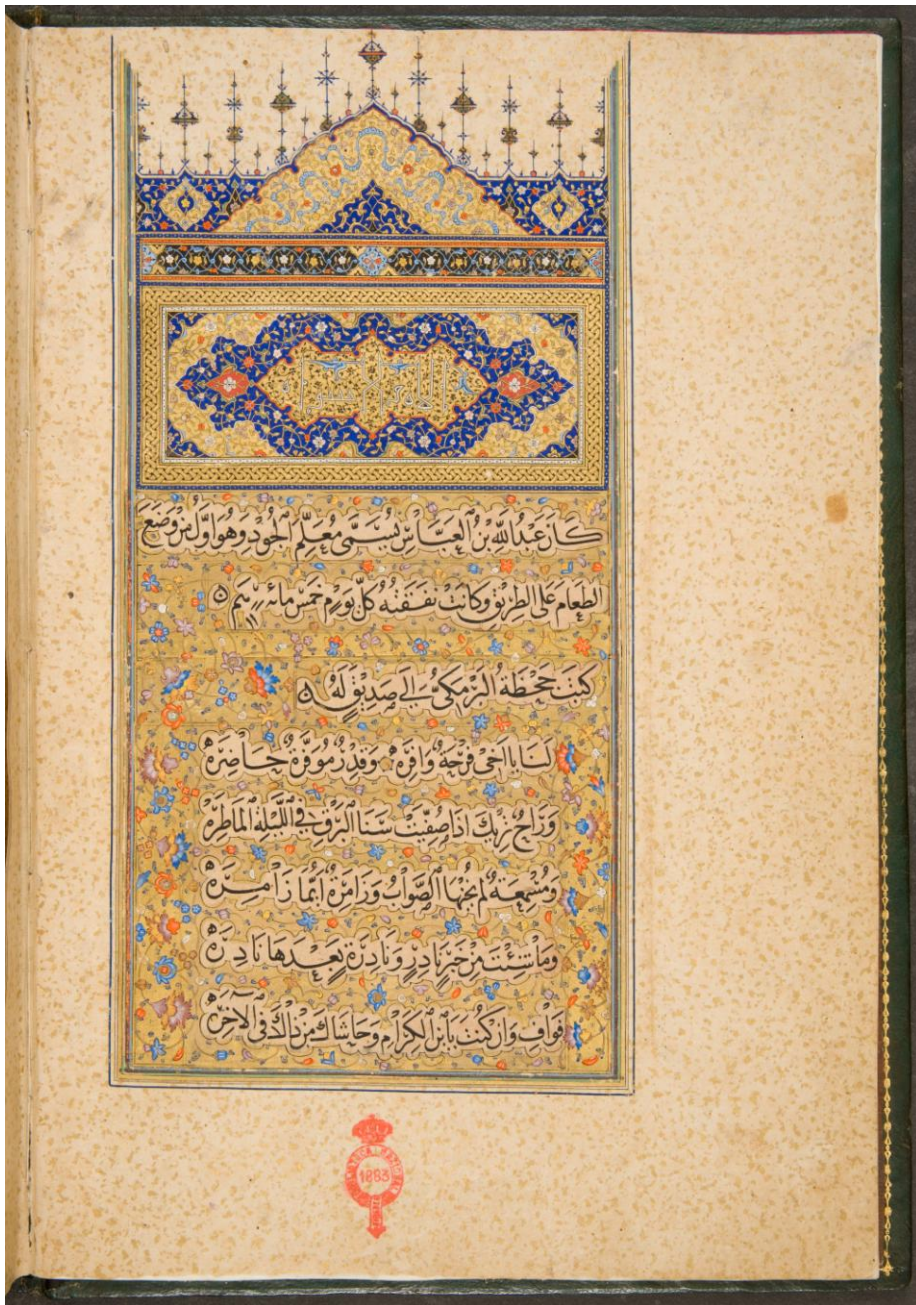 كَانَ عَبْدُ اللّٰهِ بْنُ العَبَّاسِ يُسَمَّى مُعَلِّمَ الجُودِ وَهُوَ اَوَّلُ مَنْ وَضَعَ
الطعَامَ عَلَى الطرِيقِ وَكَانَتْ نَفَقَتُهُ كُلَّ يَوْمٍ خَمْسَ مِائَه دِرهَم
كَتَبَ جَحْظَةُ البَرْمَكِيُّ اِلَى صَدِيقٍ لَهُ
لَنَا يَا اَخِى فَرْحَةٌ وَافِرَه وَقِدْرٌ مُوَفَّرَةٌ حَاضِرَهْ
وَرَاحٌ تُرِيكَ اذَا صُفِّيَتْ سَنَا البَرْقِ فِي اللَّيْلَةِ المَاطِرَهْ
وَمُسْمِعَةٌ لَمْ يَخُنْهَا الصَّوَابُ وَزَامِرَةٌ اَيُّمَا زَامِرَهْ
وَمَا شِئْتَ مِنْ خَبَرٍ نَادِرٍ وَنَادِرَةٍ بَعْدَهَا نَادِرَهْ
فَوَافِ وَاِنْ كُنْتَ يَا بْنَ الكِرَامِ وَحَاشَاكَ مِنْ ذَاكَ فِي الآخِرَهْ
1863